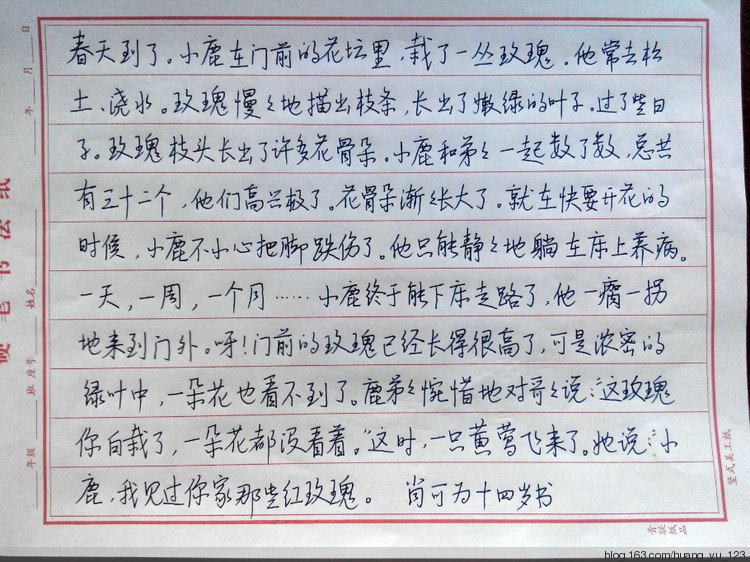 春天到了。小鹿在门前的花坛里,栽了一丛玫瑰。他常去松
土、浇水。玫瑰慢々地描出枝条,长出了嫩绿的叶子。过了些日
子。玫瑰枝头长出了许多花骨朵。小鹿和弟々一起数了数,总共
有三十二个,他们高兴极了。花骨朵渐々长大了。就在快要开花的
时候,小鹿不小心把脚跌伤了。他只能静々地躺在床上养病。
一天,一周,一个月……小鹿终于能下床走路了,他一瘸一拐
地来到门外。呀!门前的玫瑰已经长得很高了,可是浓密的
绿叶中,一朵花也看不到了。鹿弟々惋惜地对哥々说:“这玫瑰
你白栽了,一朵花都没看着。”这时,一只黄莺飞来了。她说:“小
鹿,我见过你家那些红玫瑰。 肖可为十四岁书
硬笔书法纸
年级 班 座号 姓名 年 月 日
竖式美工纸
青联纸品
blog.163.com/huang_yu_123